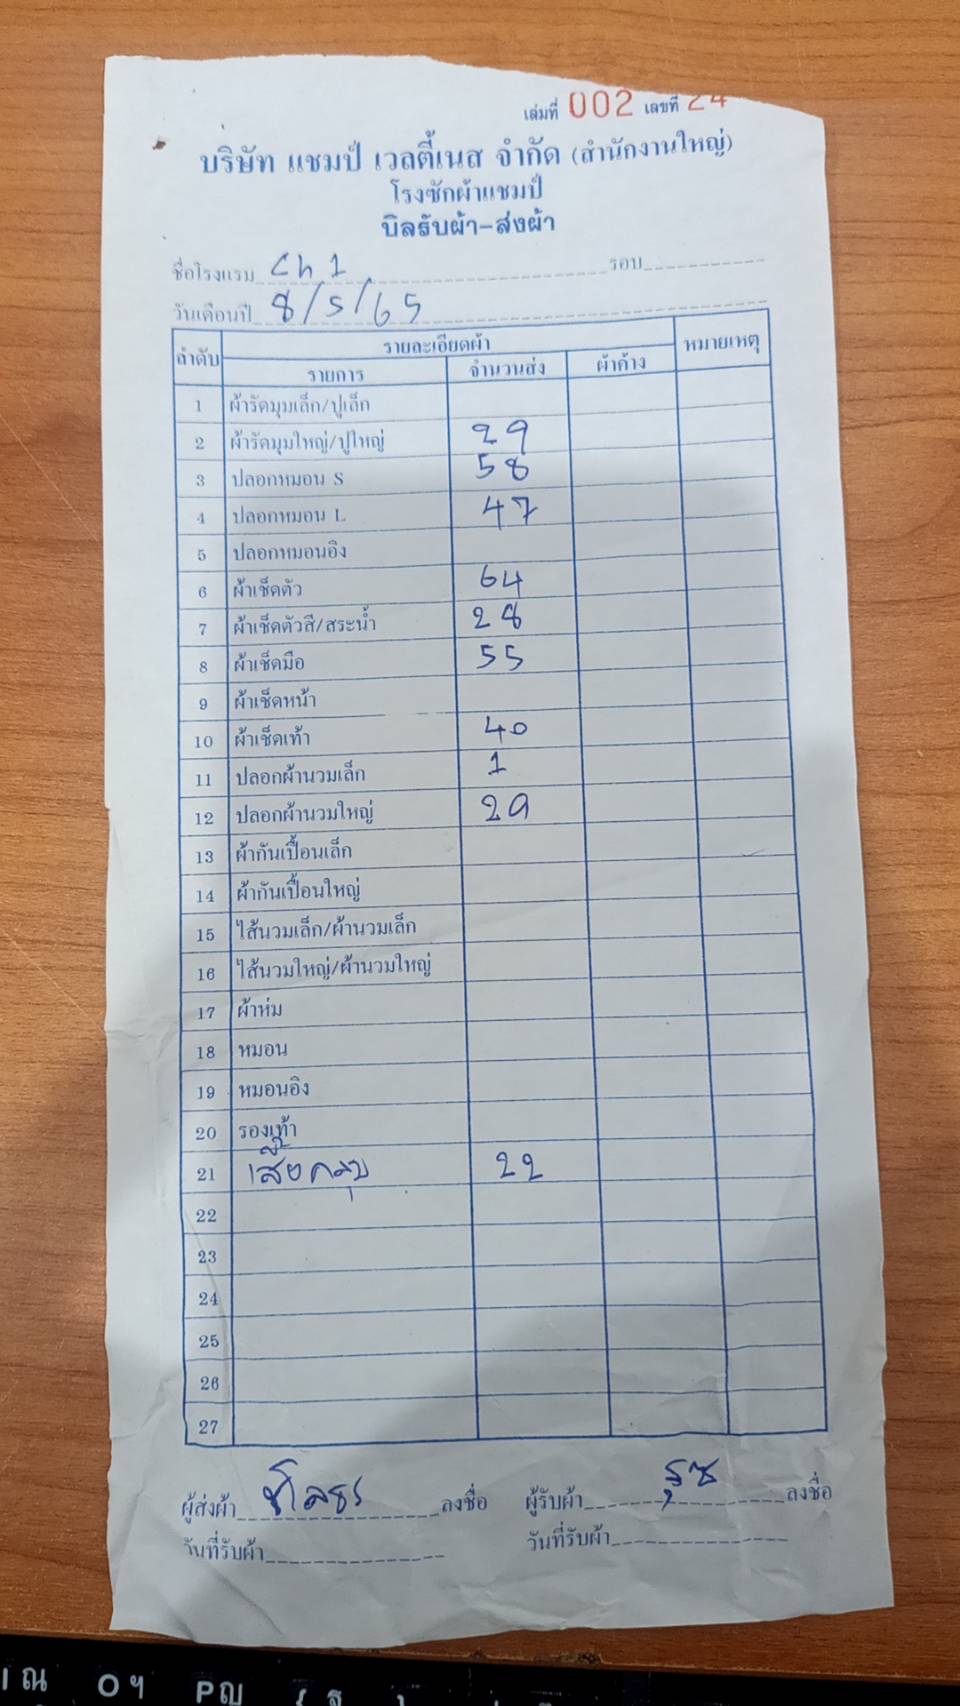 เล่มที่ 002 เลขที่ 24
บริษัท แชมป์ เวลตี้เนส จำกัด (สำนักงานใหญ่)
โรงซักผ้าแชมป์
บิลรับผ้า-ส่งผ้า
ชื่อโรงแรม Ch 1 รอบ
วันเดือนปี 8/5/65
ลำดับ รายละเอียดผ้า หมายเหตุ
รายการ จำนวนส่ง ผ้าค้าง
1 ผ้ารัดมุมเล็ก/ปูเล็ก
2 ผ้ารัดมุมใหญ่/ปูใหญ่ 29
3 ปลอกหมอน S 58
4 ปลอกหมอน L 47
5 ปลอกหมอนอิง
6 ผ้าเช็ดตัว 64
7 ผ้าเช็ดตัวสี/สระน้ำ 28
8 ผ้าเช็ดมือ 55
9 ผ้าเช็ดหน้า
10 ผ้าเช็ดเท้า 40
11 ปลอกผ้านวมเล็ก 1
12 ปลอกผ้านวมใหญ่ 29
13 ผ้ากันเปื้อนเล็ก
14 ผ้ากันเปื้อนใหญ่
15 ไส้นวมเล็ก/ผ้านวมเล็ก
16 ไส้นวมใหญ่/ผ้านวมใหญ่
17 ผ้าห่ม
18 หมอน
19 หมอนอิง
20 รองเท้า
21 เสื้อคลุม 22
22
23
24
25
26
27
ผู้ส่งผ้า ลงชื่อ ผู้รับผ้า ลงชื่อ
วันที่รับผ้า วันที่รับผ้า